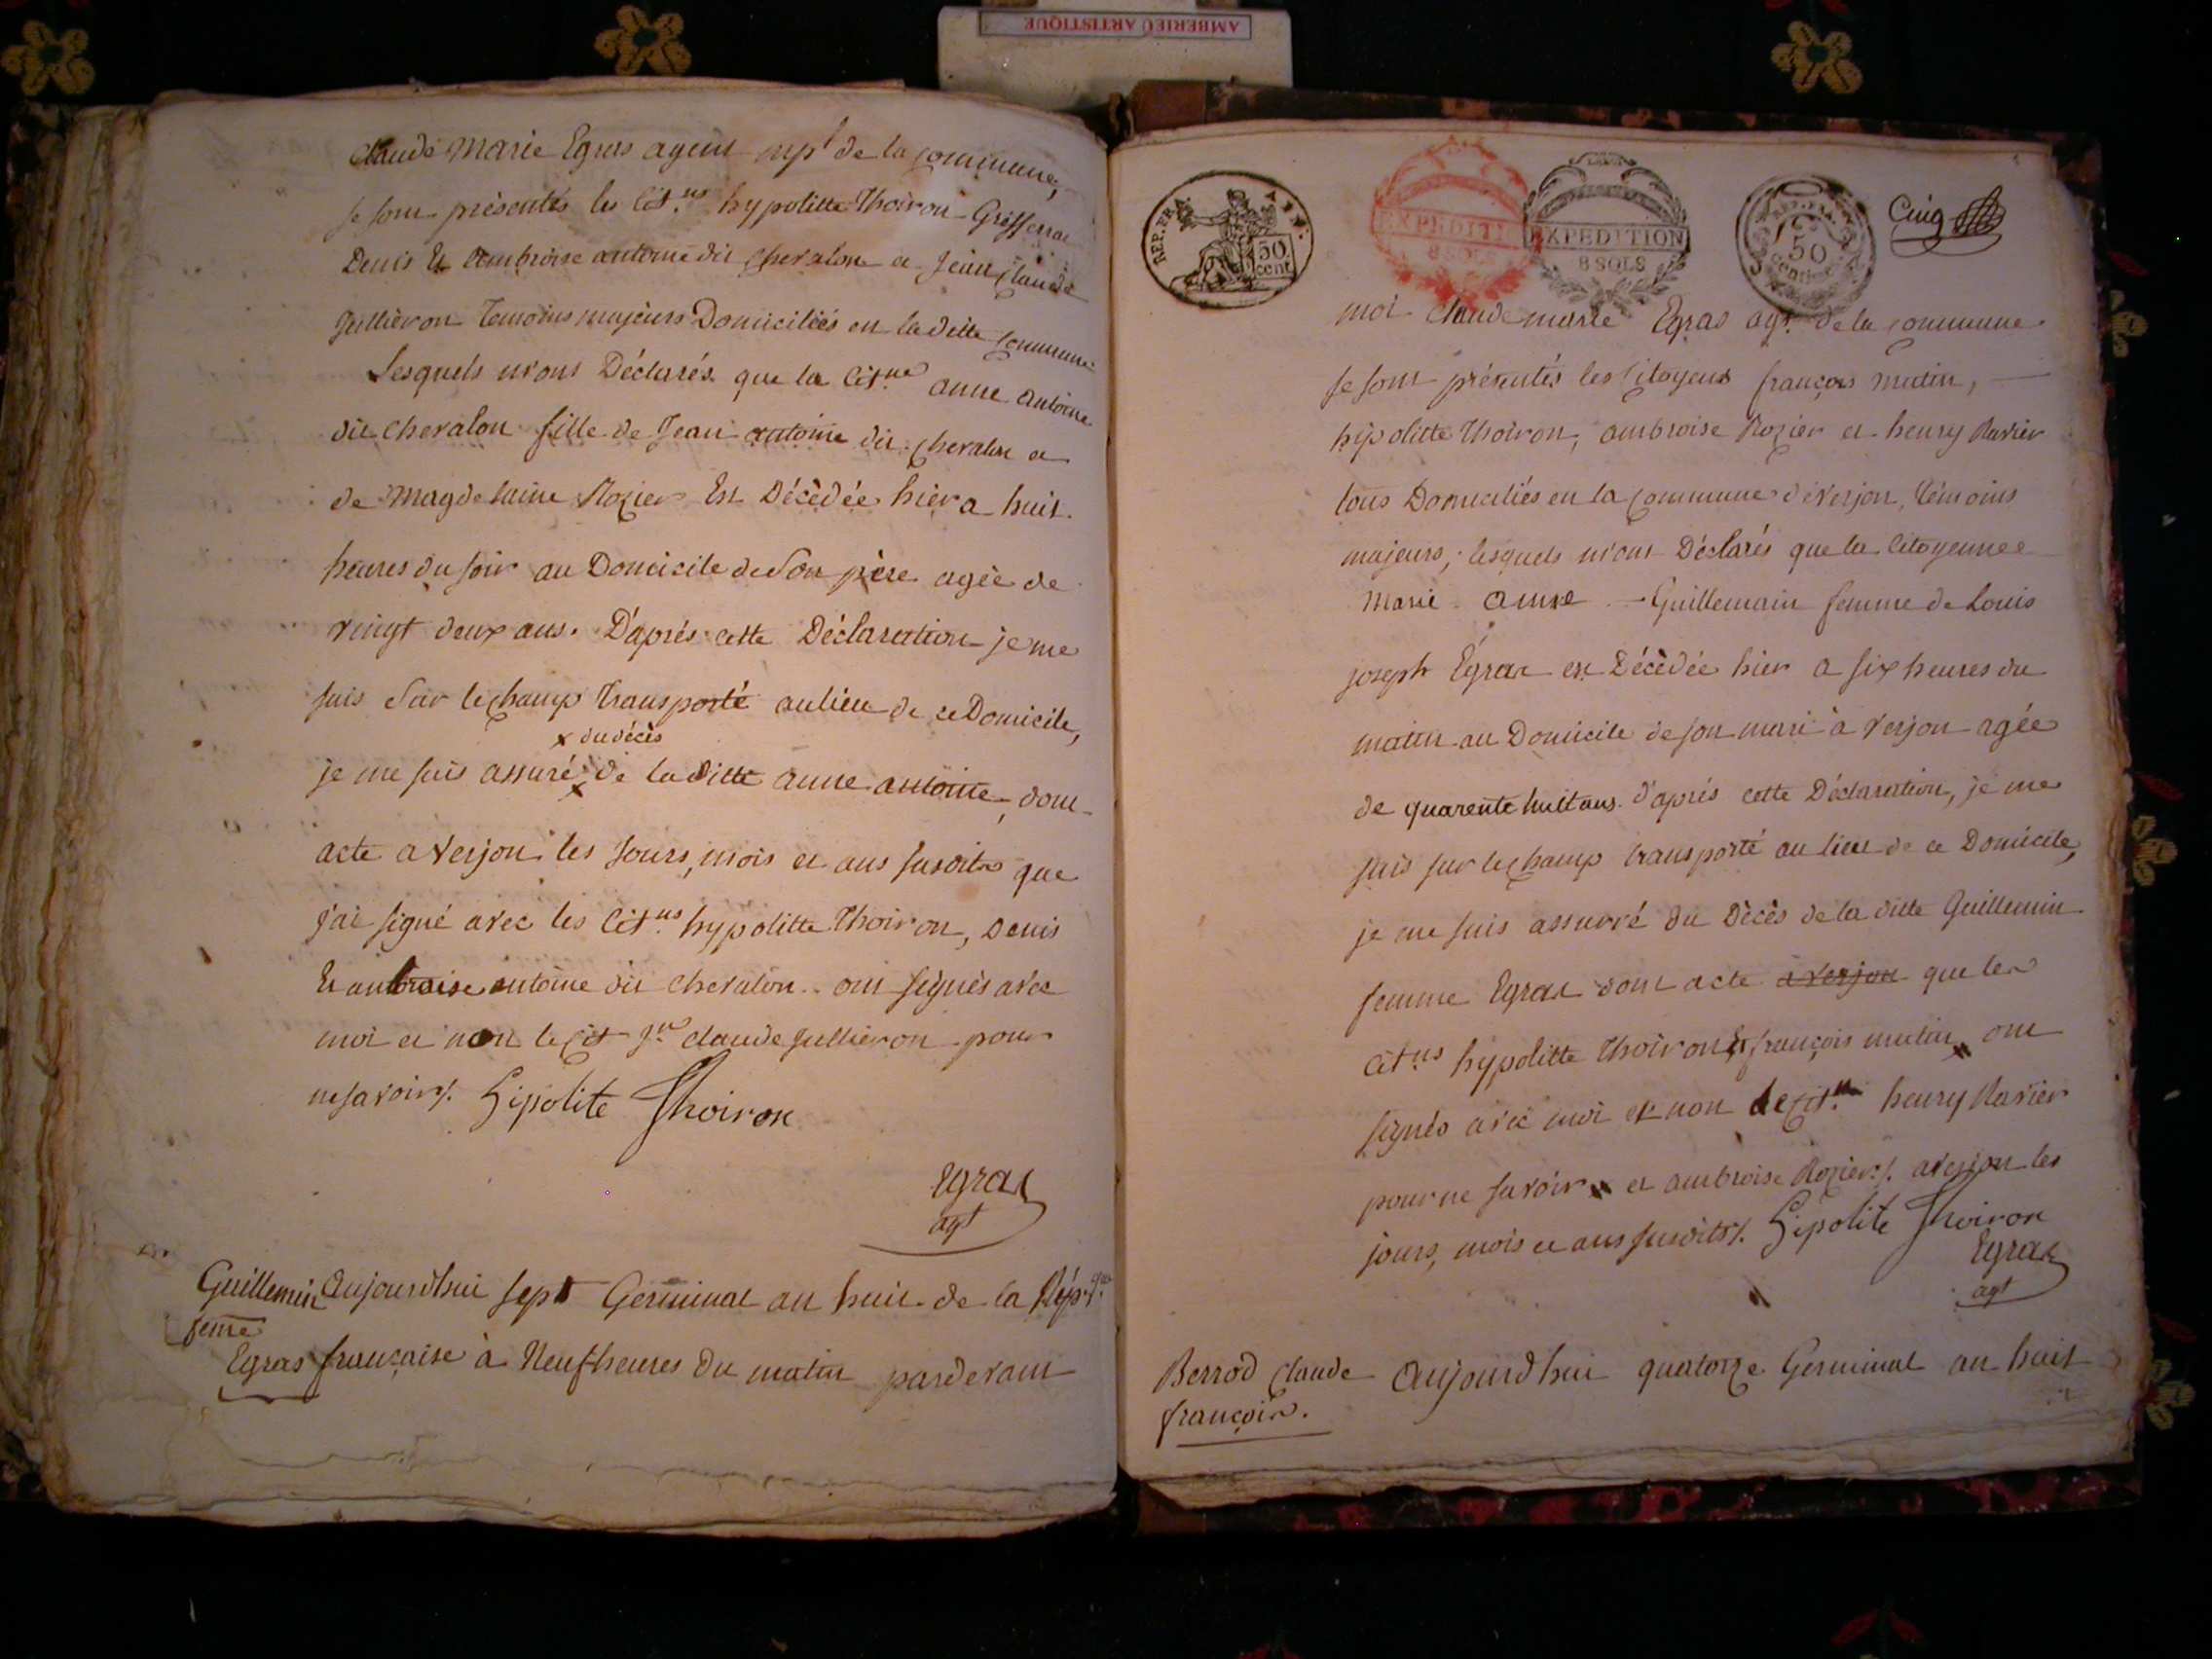 AMBERIEU ARTISTIQUE
Claude Marie Egras agent mpl de la commune,
se sont présentés les Cit.ns hypolitte Thoiron Greffier
Denis Et Ambroise antoine dit chevalon et Jean Claude
Jullieron temoins majeurs Domiciliés en la ditte commune
Lesquels m'ont Déclarés que la Cit.ne anne antoine
dit chevalon fille de Jean antoine dit chevalon et
de Magdelaine Rozier Est Décèdée hier a huit
heures du soir au Domicile de Son père agée de
vingt deux ans. D'après cette Déclaration je me
suis Sur le champ transporté au lieu de ce Domicile,
x du décès
je me suis assuré x de la ditte anne antoine, dont
acte a Verjon les Jours, mois et ans susdits que
j'ai signé avec les Cit.ns hypolitte Thoiron, Denis
Et ambroise antoine dit chevalon ont signés avec
moi et non le Cit Jn claude Jullieron pour
ne savoir/. Hipolite Thoiron
Egras
agt
Guillemin
feme
Egras
Aujourdhui sept Germinal an huit de la Rép.que
française à Neuf heures du matin pardevant
REP. FRA.
50
cent
EXPEDITION
8 SOLS
EXPEDITION
8 SOLS
REP. FRA.
50
centime
Cinq
moi Claude marie Egras agt. de la commune
se sont présentés les Citoyens françois mutin,
hypolitte Thoiron, ambroise Rozier et henry Ravier
tous Domiciliés en la commune de Verjon, témoins
majeurs, lesquels m'ont Déclarés que la Citoyenne
Marie Anne Guillemain femme de Louis
joseph Egras est Décèdée hier a six heures du
matin au Domicile de son mari à Verjon agée
de quarente huit ans d'après cette Déclaration, je me
suis sur le champ transporté au lieu de ce Domicile,
je me suis assurré du Dècès de la ditte Guillemin
femme Egras dont acte a verjon que les
Cit.ns hypolitte Thoiron Et françois mutin ont
signés avec moi et non le Cit.n henry Ravier
pour ne savoir et ambroise Rozier/. a verjon les
jours, mois et ans susdits/. Hipolite Thoiron
Egras
agt
Berrod Claude
françois.
Aujourdhui quatorze Germinal an huit